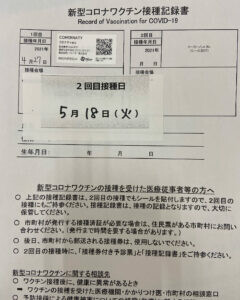 新型コロナワクチン接種記録書
Record of Vaccination for COVID-19
1回目
接種年月日
2021年
4月27日
接種会場
COMIRNATY
2回目
接種年月日
2021年
2回目接種日
5月18日(火)
生年月日 年 月 日
新型コロナワクチンの接種を受けた医療従事者等の方へ
○ 上記の接種記録書は、2回目の接種でもシールを貼付しますので、2回目の
接種にもご持参ください。接種記録書は、接種の記録となりますので、大切に
保管してください。
○ 市町村が発行する接種済証が必要な場合は、住民票がある市町村にお問い
合わせください。(発行まで時間を要する場合があります。)
○ 後日、市町村から郵送される接種券は、使用しないでください。
○ 2回目の接種時に、「接種券付き予診票」と「接種記録書」をご持参ください。
新型コロナワクチンに関する相談先
○ ワクチン接種後に、健康に異常があるとき
→ ワクチンの接種を受けた医療機関・かかりつけ医・市町村の相談窓口